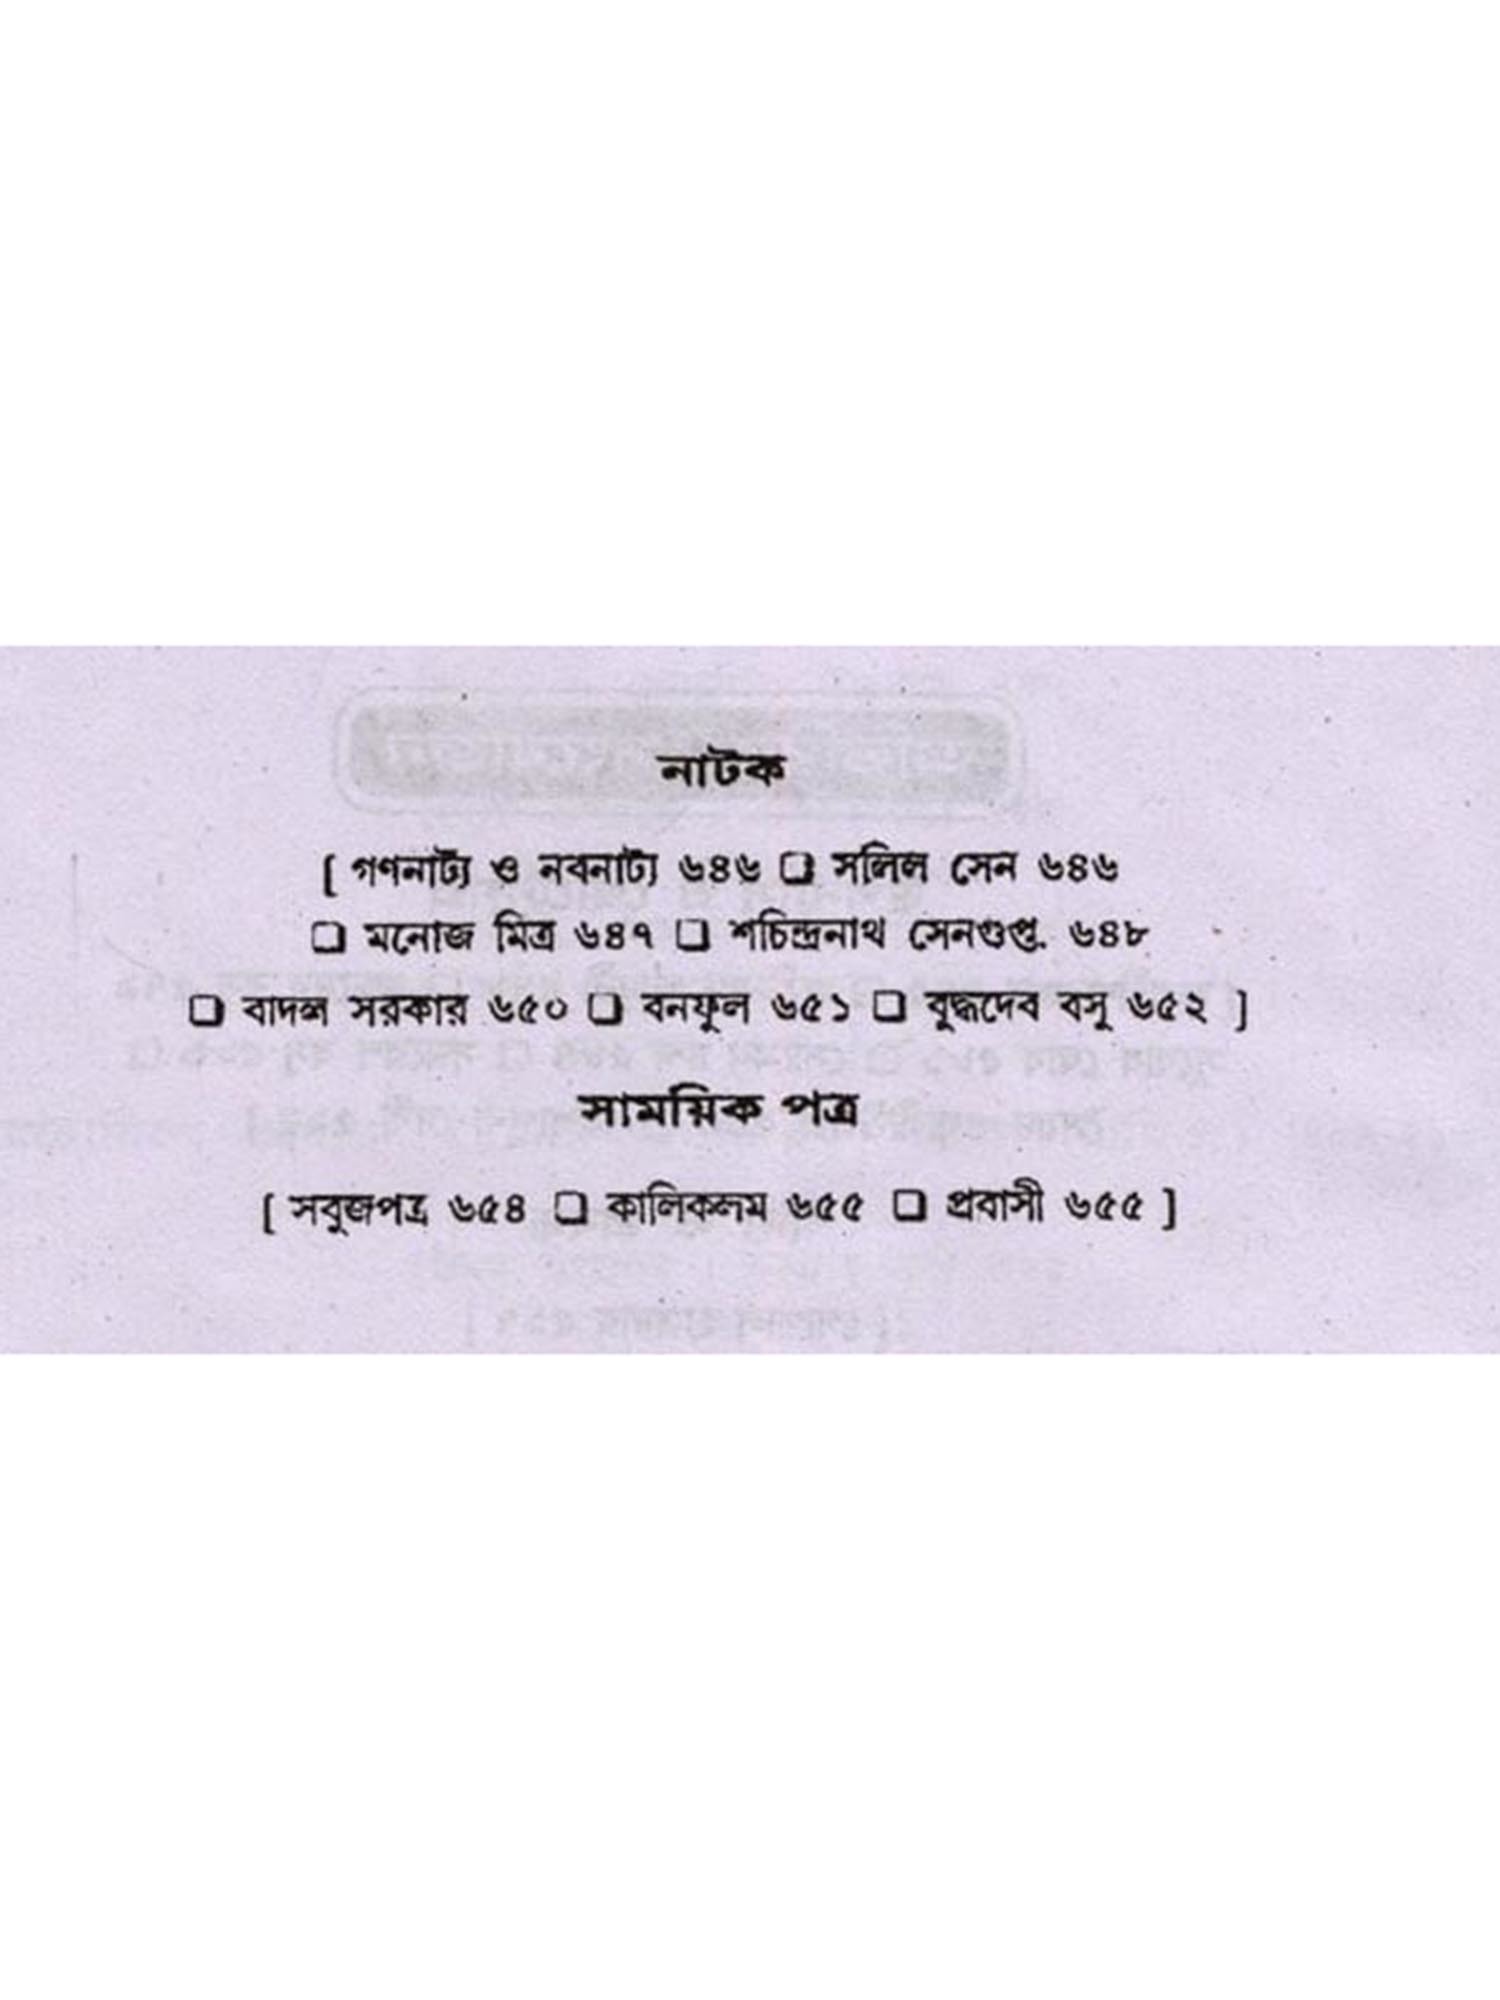 নাটক
[ গণনাট্য ও নবনাট্য ৬৪৬ ❑ সলিল সেন ৬৪৬
❑ মনোজ মিত্র ৬৪৭ ❑ শচিন্দ্রনাথ সেনগুপ্ত ৬৪৮
❑ বাদল সরকার ৬৫০ ❑ বনফুল ৬৫১ ❑ বুদ্ধদেব বসু ৬৫২ ]
সাময়িক পত্র
[ সবুজপত্র ৬৫৪ ❑ কালিকলম ৬৫৫ ❑ প্রবাসী ৬৫৫ ]